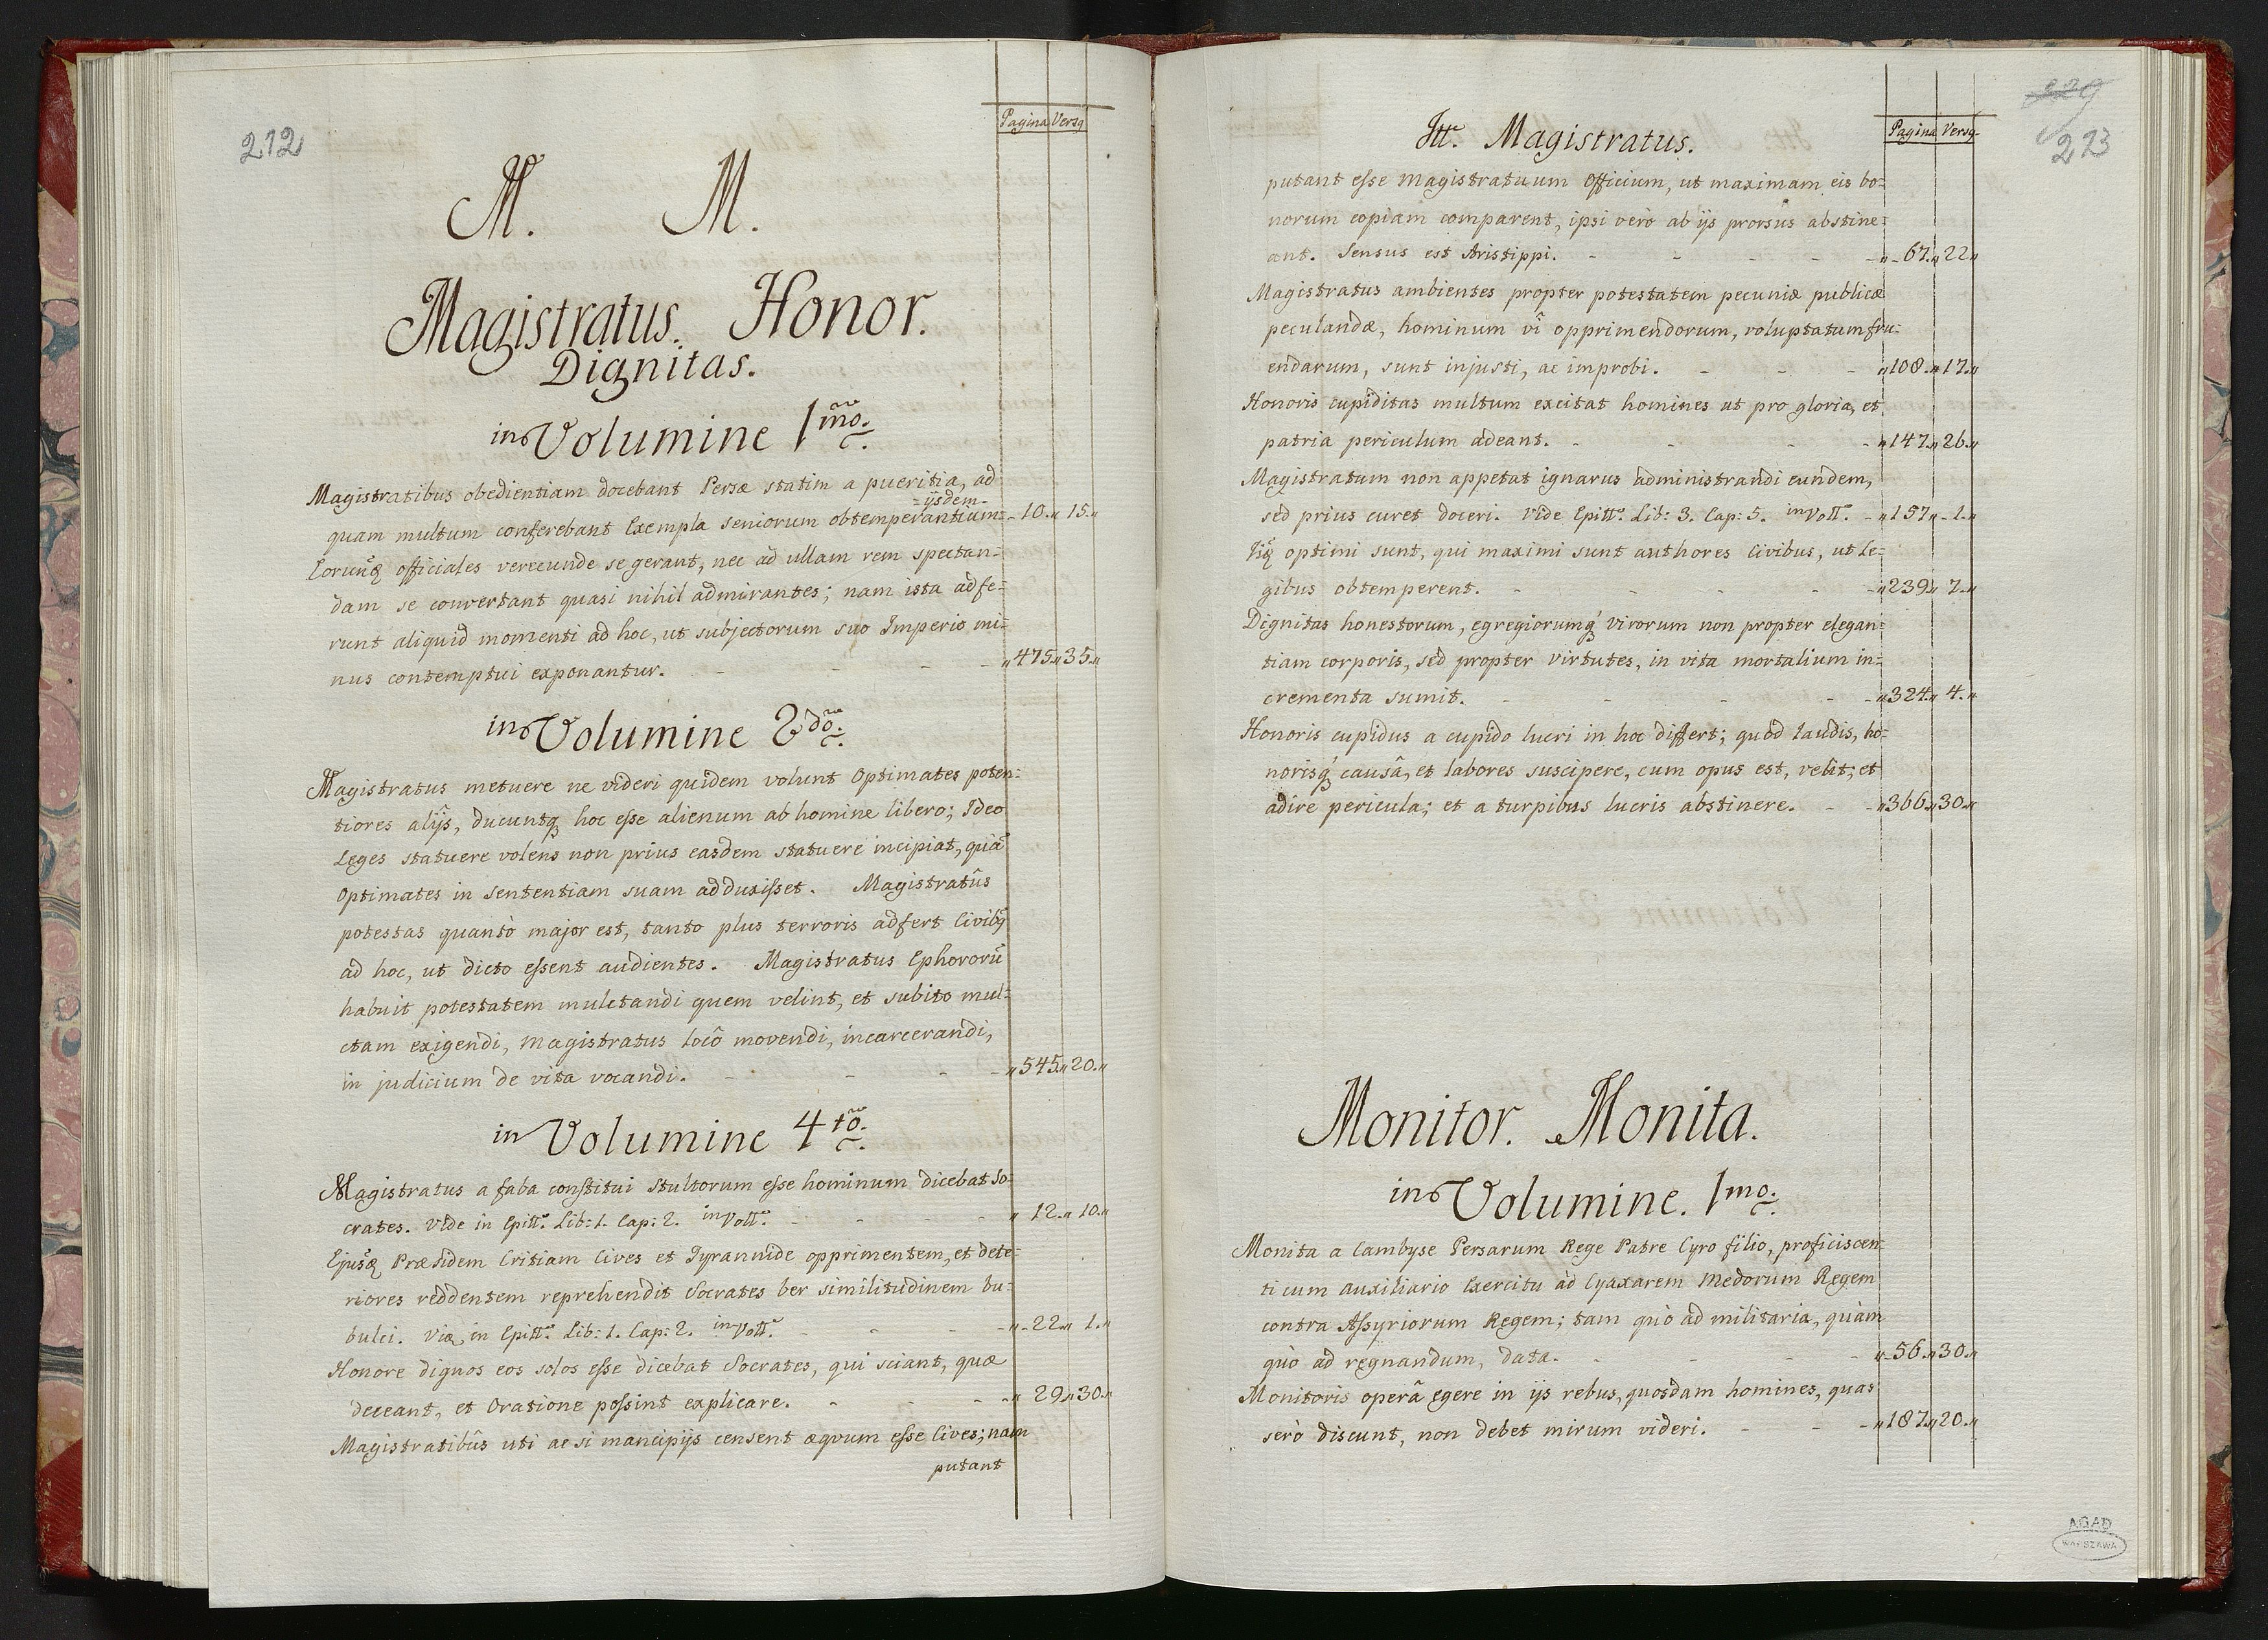 212
Pagina Versq
M. M.
Magistratus. Honor.
Dignitas.
in Volumine 1mo.
Magistratibus obedientiam docebant Persæ statim a pueritia, ad
=ijsdem-
quam multum conferebant Exempla seniorum obtemperantium= - 10.„ 15.„
Eorumq officiales verecunde se gerant, nec ad ullam rem spectan=
dam se convertant quasi nihil admirantes; nam ista adfe=
runt aliquid momenti ad hoc, ut subjectorum suo Imperio mi=
nus contemptui exponantur. - - - - „475.„35.„
in Volumine 2do.
Magistratus metuere ne videri quidem volunt Optimates poten=
tiores alijs, ducuntq hoc esse alienum ab homine libero; Ideo
Leges statuere volens non prius easdem statuere incipiat, quã
Optimates in sententiam suam adduxisset. Magistratûs
potestas quantò major est, tanto plus terroris adfert Civibq
ad hoc, ut dicto essent audientes. Magistratus Ephororũ
habuit potestatem mulctandi quem velint, et subito mul=
ctam exigendi, magistratus locô movendi, incarcerandi,
in judicium de vita vocandi. - - - - „545.„20.„
in Volumine 4to.
Magistratus a faba constitui stultorum esse hominum dicebat So=
crates. Vide in Epitt. Lib: 1. Cap: 2. in Voll. - - - - „ 12.„ 10.„
Ejusq Præsidem Critiam Cives et Tyrannide opprimentem, et dete=
riores reddentem reprehendit Socrates ber similitudinem bu=
bulci. Viæ in Epitt. Lib: 1. Cap: 2. in Voll. - - - „-22.„ 1.„
Honore dignos eos solos esse dicebat Socrates, qui sciant, quæ
deceant, et Oratione possint explicare. - - - -„ 29.„30.„
Magistratibûs uti ac si mancipijs censent æqvum esse Cives; nam
putant
229
213
Pagina Versq
Itt. Magistratus.
putant esse Magistratuum Officium, ut maximam eis bo=
norum copiam comparent, ipsi verò ab ijs prorsus abstine=
ant. Sensus est Aristippi. - - - - -„-67.„22„
Magistratus ambientes propter potestatem pecuniæ publicæ
peculandæ, hominum vî opprimendorum, voluptatum fru=
endarum, sunt injusti, ac improbi. - - - „108.„17.„
Honoris cupiditas multum excitat homines ut pro gloria, et
patria periculum adeant. - - - -„147.„26.„
Magistratum non appetat ignarus administrandi eundem,
sed prius curet doceri. Vide Epitt. Lib: 3. Cap: 5. in Voll. -„157„-1.„
Iiq optimi sunt, qui maximi sunt authores Civibus, ut Le=
gibus obtemperent. - - - - -„239.„ 7.„
Dignitas honestorum, egregiorumq virorum non propter elegan=
tiam corporis, sed propter Virtutes, in vita mortalium in=
crementa sumit. - - - - -„324.„ 4.„
Honoris cupidus a cupido lucri in hoc differt; quòd laudis, ho=
norisq causâ, et labores suscipere, cum opus est, velit; et
adire pericula; et a turpibus lucris abstinere. - -„366.„30.„
Monitor. Monita.
in Volumine. 1mo.
Monita a Cambyse Persarum Rege Patre Cyro filio, proficiscen=
ti cum auxiliario Exercitu ad Cyaxarem Medorum Regem
contra Assyriorum Regem; tam quò ad militaria, quàm
quò ad regnandum, data. - - - - „-56.„30.„
Monitoris operâ egere in ijs rebus, quosdam homines, quas
serò discunt, non debet mirum videri. - - -„187.„20.„
AGAD
WARSZAWA